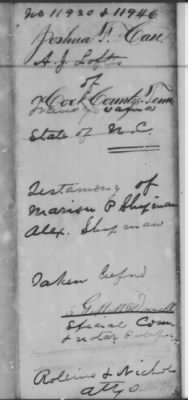 No 11920 & 11946
Joshua T. Case
A. J. Loftis
of
Cook County Tenn
State of N. C.
Testamony of
Marion P Shipman
Alex. Shipman
Taken before
Special Com.
& notary
Rollins & Nichols
attys